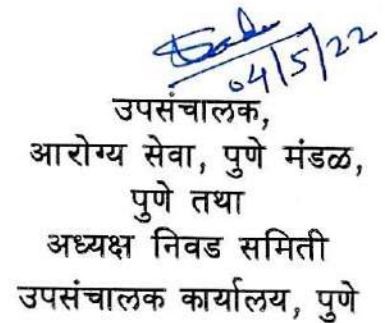 04/5/22
उपसंचालक,
आरोग्य सेवा, पुणे मंडळ,
पुणे तथा
अध्यक्ष निवड समिती
उपसंचालक कार्यालय, पुणे